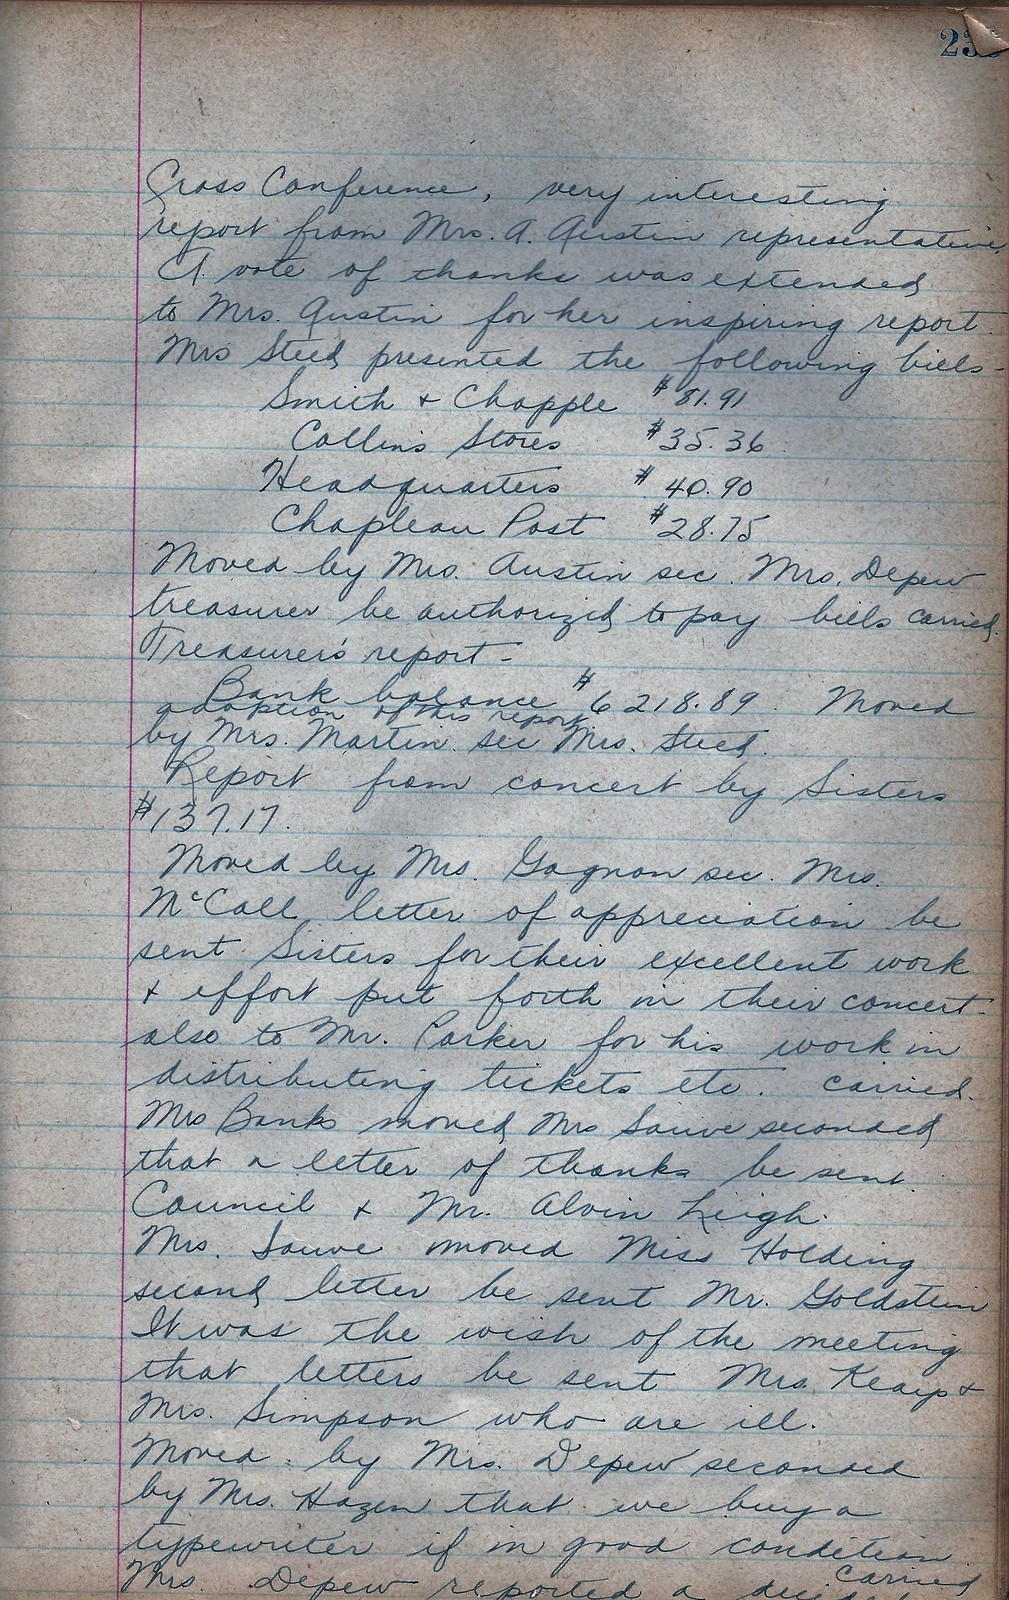 23
Cross Conference, very interesting
report from Mrs. A. Austin representative.
A vote of thanks was extended
to Mrs. Austin for her inspiring report.
Mrs Steed presented the following bills-
Smith & Chapple $81.91
Collins Stores $35.36
Headquarters $40.90
Chapleau Post $28.75
Moved by Mrs. Austin sec. Mrs. Depew
treasurer be authorized to pay bills carried.
Treasurer's report-
Bank balance $6218.89. Moved
adoption of this report
by Mrs. Martin sec Mrs. Steed.
Report from concert by Sisters
$137.17.
Moved by Mrs. Gagnon sec. Mrs.
McCall letter of appreciation be
sent Sisters for their excellent work
& effort put forth in their concert-
also to Mr. Parker for his work in
distributing tickets etc. carried.
Mrs Banks moved Mrs Sauve seconded
that a letter of thanks be sent
Council & Mr. Alvin Leigh.
Mrs. Sauve moved Miss Holding
second letter be sent Mr. Goldstein
It was the wish of the meeting
that letters be sent Mrs. &
Mrs. Simpson who are ill.
Moved by Mrs. Depew seconded
by Mrs. Hazen that we buy a
typewriter if in good condition.
carried
Mrs. Depew reported a